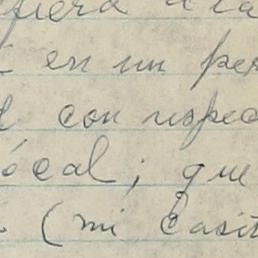 fiera a la
en un per
con respec
ócal; que
(mi casit